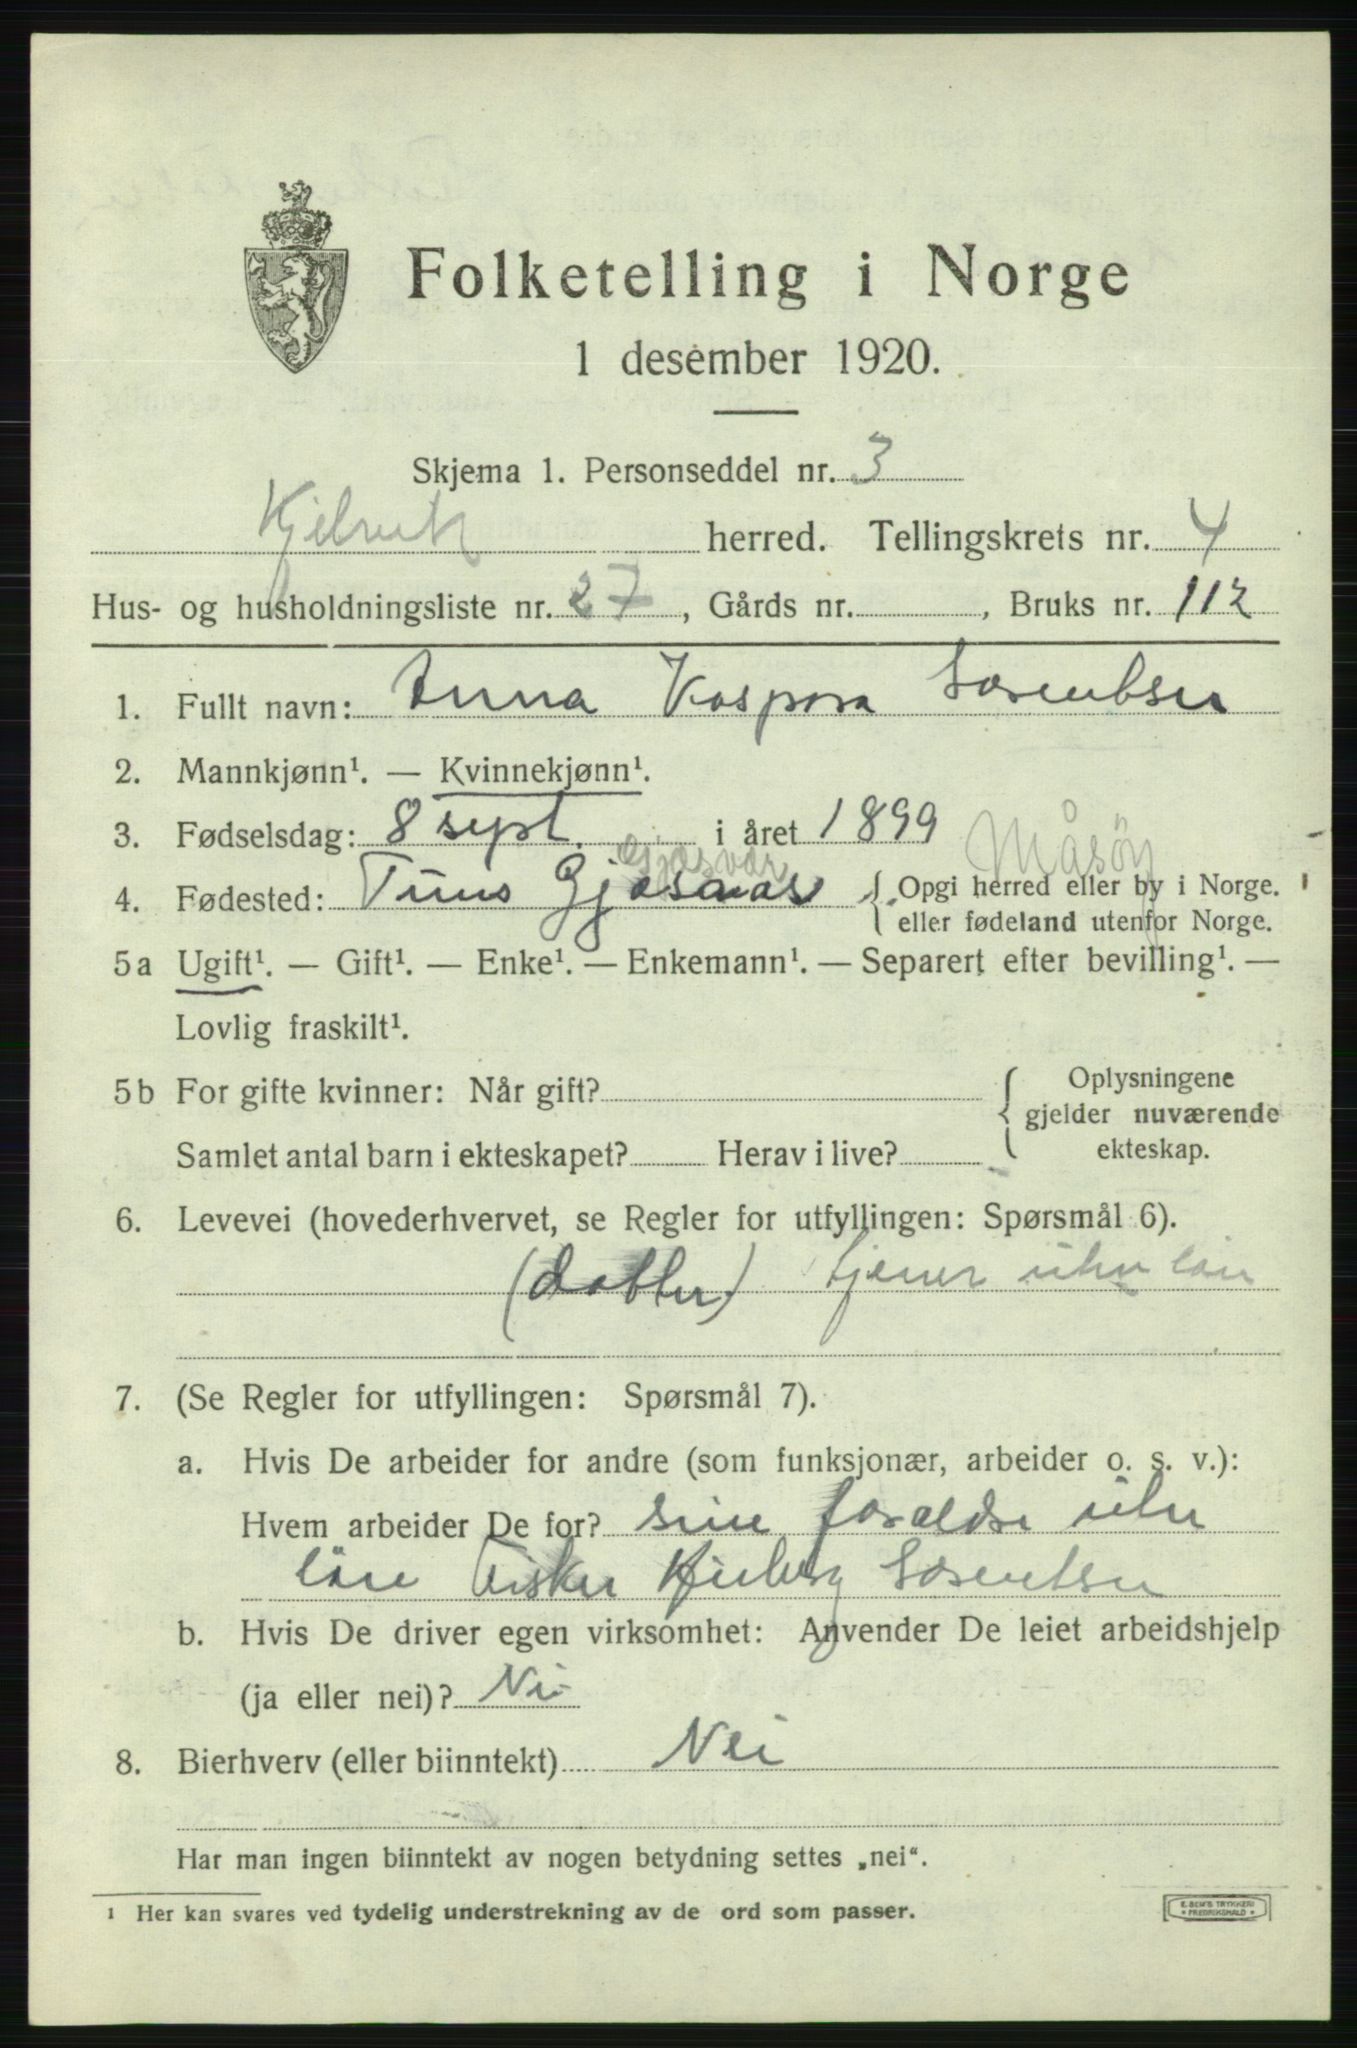 Folketelling i Norge
1 desember 1920.
Skjema 1. Personseddel nr. 3
Kjelvik herred. Tellingskrets nr. 4
Hus- og husholdningsliste nr. 27, Gårds nr. , Bruks nr. 112
1. Fullt navn: Anna Kaspara Lorentsen
2. Mannkjønn¹. — Kvinnekjønn¹.
3. Fødselsdag: 8 sept. i året 1899 Måsöy
Gjæsvær
4. Fødested: Tunes { Opgi herred eller by i Norge.
eller fødeland utenfor Norge.
5a Ugift¹. — Gift¹. — Enke¹. — Enkemann¹. — Separert efter bevilling¹. —
Lovlig fraskilt¹.
5b For gifte kvinner: Når gift? { Oplysningene
gjelder nuværende
Samlet antal barn i ekteskapet? Herav i live? ekteskap.
6. Levevei (hovederhvervet, se Regler for utfyllingen: Spørsmål 6).
(datter) tjener uten lön
7. (Se Regler for utfyllingen: Spørsmål 7).
a. Hvis De arbeider for andre (som funksjonær, arbeider o. s. v.):
Hvem arbeider De for? sine foreldre uten
lön fisker Lorentsen
b. Hvis De driver egen virksomhet: Anvender De leiet arbeidshjelp
(ja eller nei)? Nei
8. Bierhverv (eller biinntekt) Nei
Har man ingen biinntekt av nogen betydning settes „nei“.
¹ Her kan svares ved tydelig understrekning av de ord som passer.
E. SEM'S TRYKKERI
* FREDRIKSHALD *